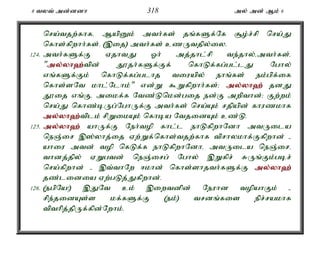 8 வலவ் அன்னனா 318 அல் அன் ஆம் 6
செய்வதற்காக. ஆயினும் அவர்கள் தங்களுக்கே சூழ்ச்சி செய்து
கொள்கிறார்கள். (இதை) அவர்கள் உணருவதில்லை.
124. அவர்களுக்கு ஏதாவது ஓர் அத்தாட்சி வந்தால்,அவர்கள்,
"அல்லாஹ்வின் தூதர்களுக்குக் கொடுக்கப்பட்டது போல்
எங்களுக்கும் கொடுக்கப்படாத வரையில் நாங்கள் நம்பிக்கை
கொள்ளவே மாட்டோம்" என்று கூறுகிறார்கள்; அல்லாஹ் தனது
தூதை எங்கு, அமைக்க வேண்டுமென்பதை நன்கு அறிவான்; குற்றம்
செய்து கொண்டிருப்போருக்கு அவர்கள் செய்யும் சதியின் காரணமாக
அல்லாஹ்விடம் சிறுமையும் கொடிய வேதனையும் உண்டு.
125. அல்லாஹ் யாருக்கு நேர்வழி காட்ட நாடுகிறானோ அவருடைய
நெஞ்சை இஸ்லாத்தை ஏற்றுக்கொள்வதற்காக விசாலமாக்குகிறான் -
யாரை அவன் வழி கெடுக்க நாடுகிறானோ, அவருடைய நெஞ்சை,
வானத்தில் ஏறுபவன் நெஞ்சைப் போல் இறுகிச் சுருங்கும்படிச்
செய்கிறான் - இவ்வாறே ஈமான் கொள்ளாதவர்களுக்கு அல்லாஹ்
தண்டனையை ஏற்படுத்துகிறான்.
126. (நபியே!) இதுவே உம் இறைவனின் நேரான வழியாகும் -
சிந்தனையுள்ள மக்களுக்கு (நம்) வசனங்களை நிச்சயமாக
விவரித்திருக்கின்றோம்.